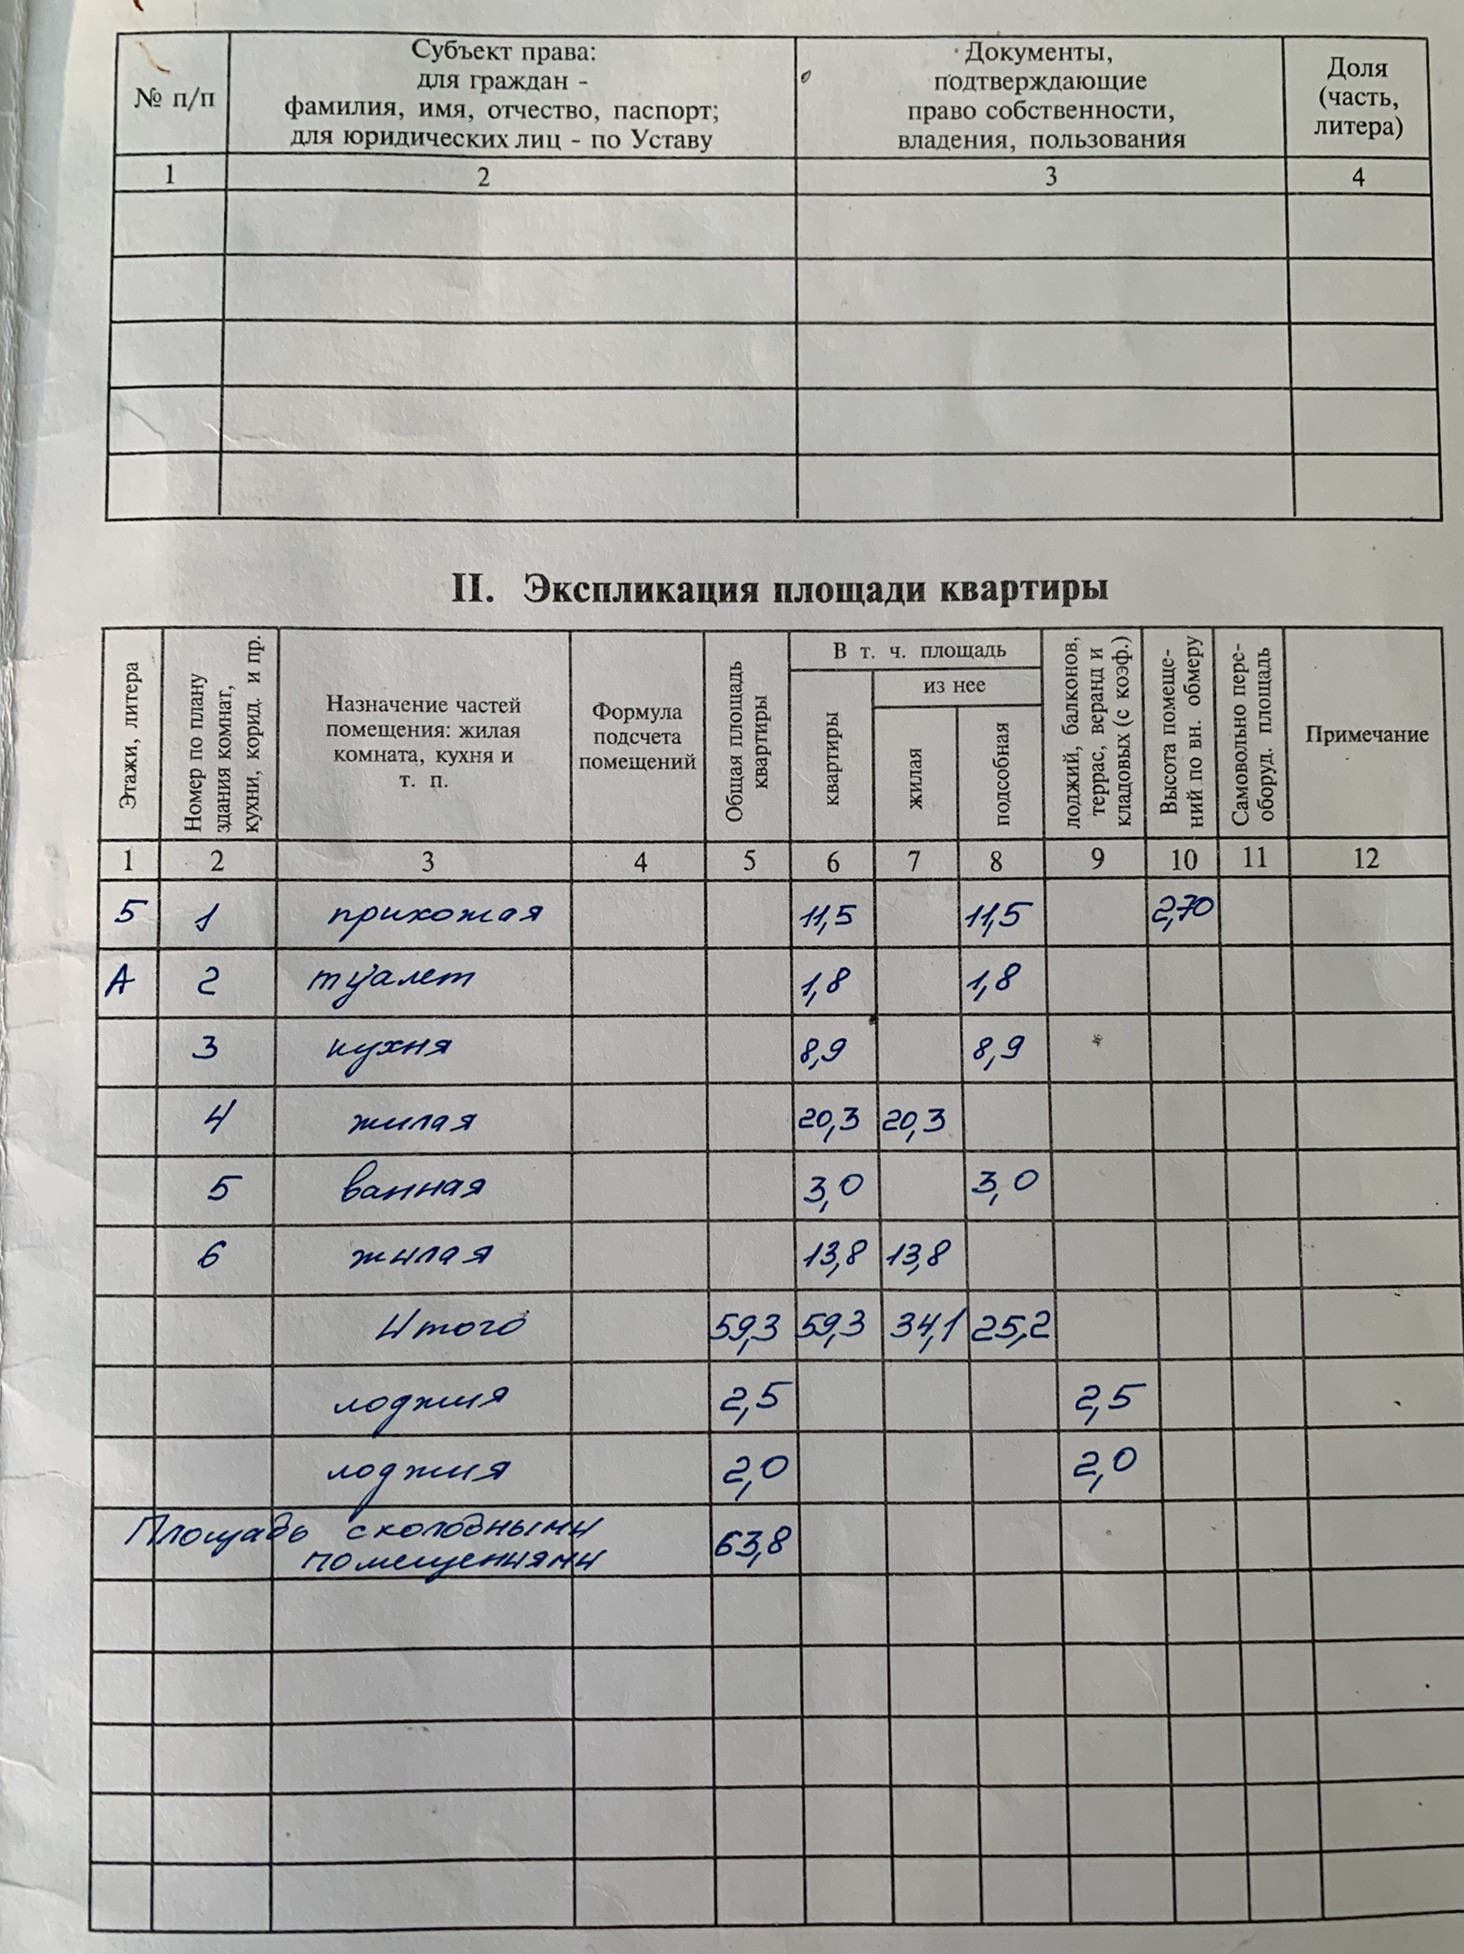 № п/п
Субъект права:
для граждан -
фамилия, имя, отчество, паспорт;
для юридических лиц - по Уставу
Документы,
подтверждающие
право собственности,
владения, пользования
Доля
(часть,
литера)
1 2 3 4
II. Экспликация площади квартиры
Этажи, литера
Номер по плану
здания комнат,
кухни, корид. и пр.
Назначение частей
помещения: жилая
комната, кухня и
т. п.
Формула
подсчета
помещений
Общая площадь
квартиры
В т. ч. площадь
квартиры
из нее
жилая
подсобная
лоджий, балконов,
террас, веранд и
кладовых (с коэф.)
Высота помеще-
ний по вн. обмеру
Самовольно пере-
оборуд. площадь
Примечание
1 2 3 4 5 6 7 8 9 10 11 12
5 1 прихожая 11,5 11,5 2,70
А 2 туалет 1,8 1,8
3 кухня 8,9 8,9
4 жилая 20,3 20,3
5 ванная 3,0 3,0
6 жилая 13,8 13,8
Итого 59,3 59,3 34,1 25,2
лоджия 2,5 2,5
лоджия 2,0 2,0
Площадь с холодными
помещениями 63,8